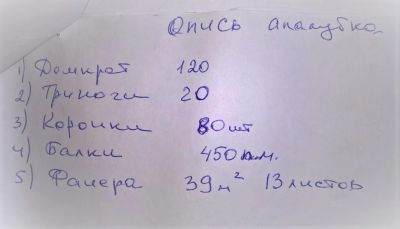 Опись опалубка
1) Домкрат 120
2) Триноги 20
3) Коронки 80 шт
4) Балки 450 п.м.
5) Фанера 39 м² 13 листов